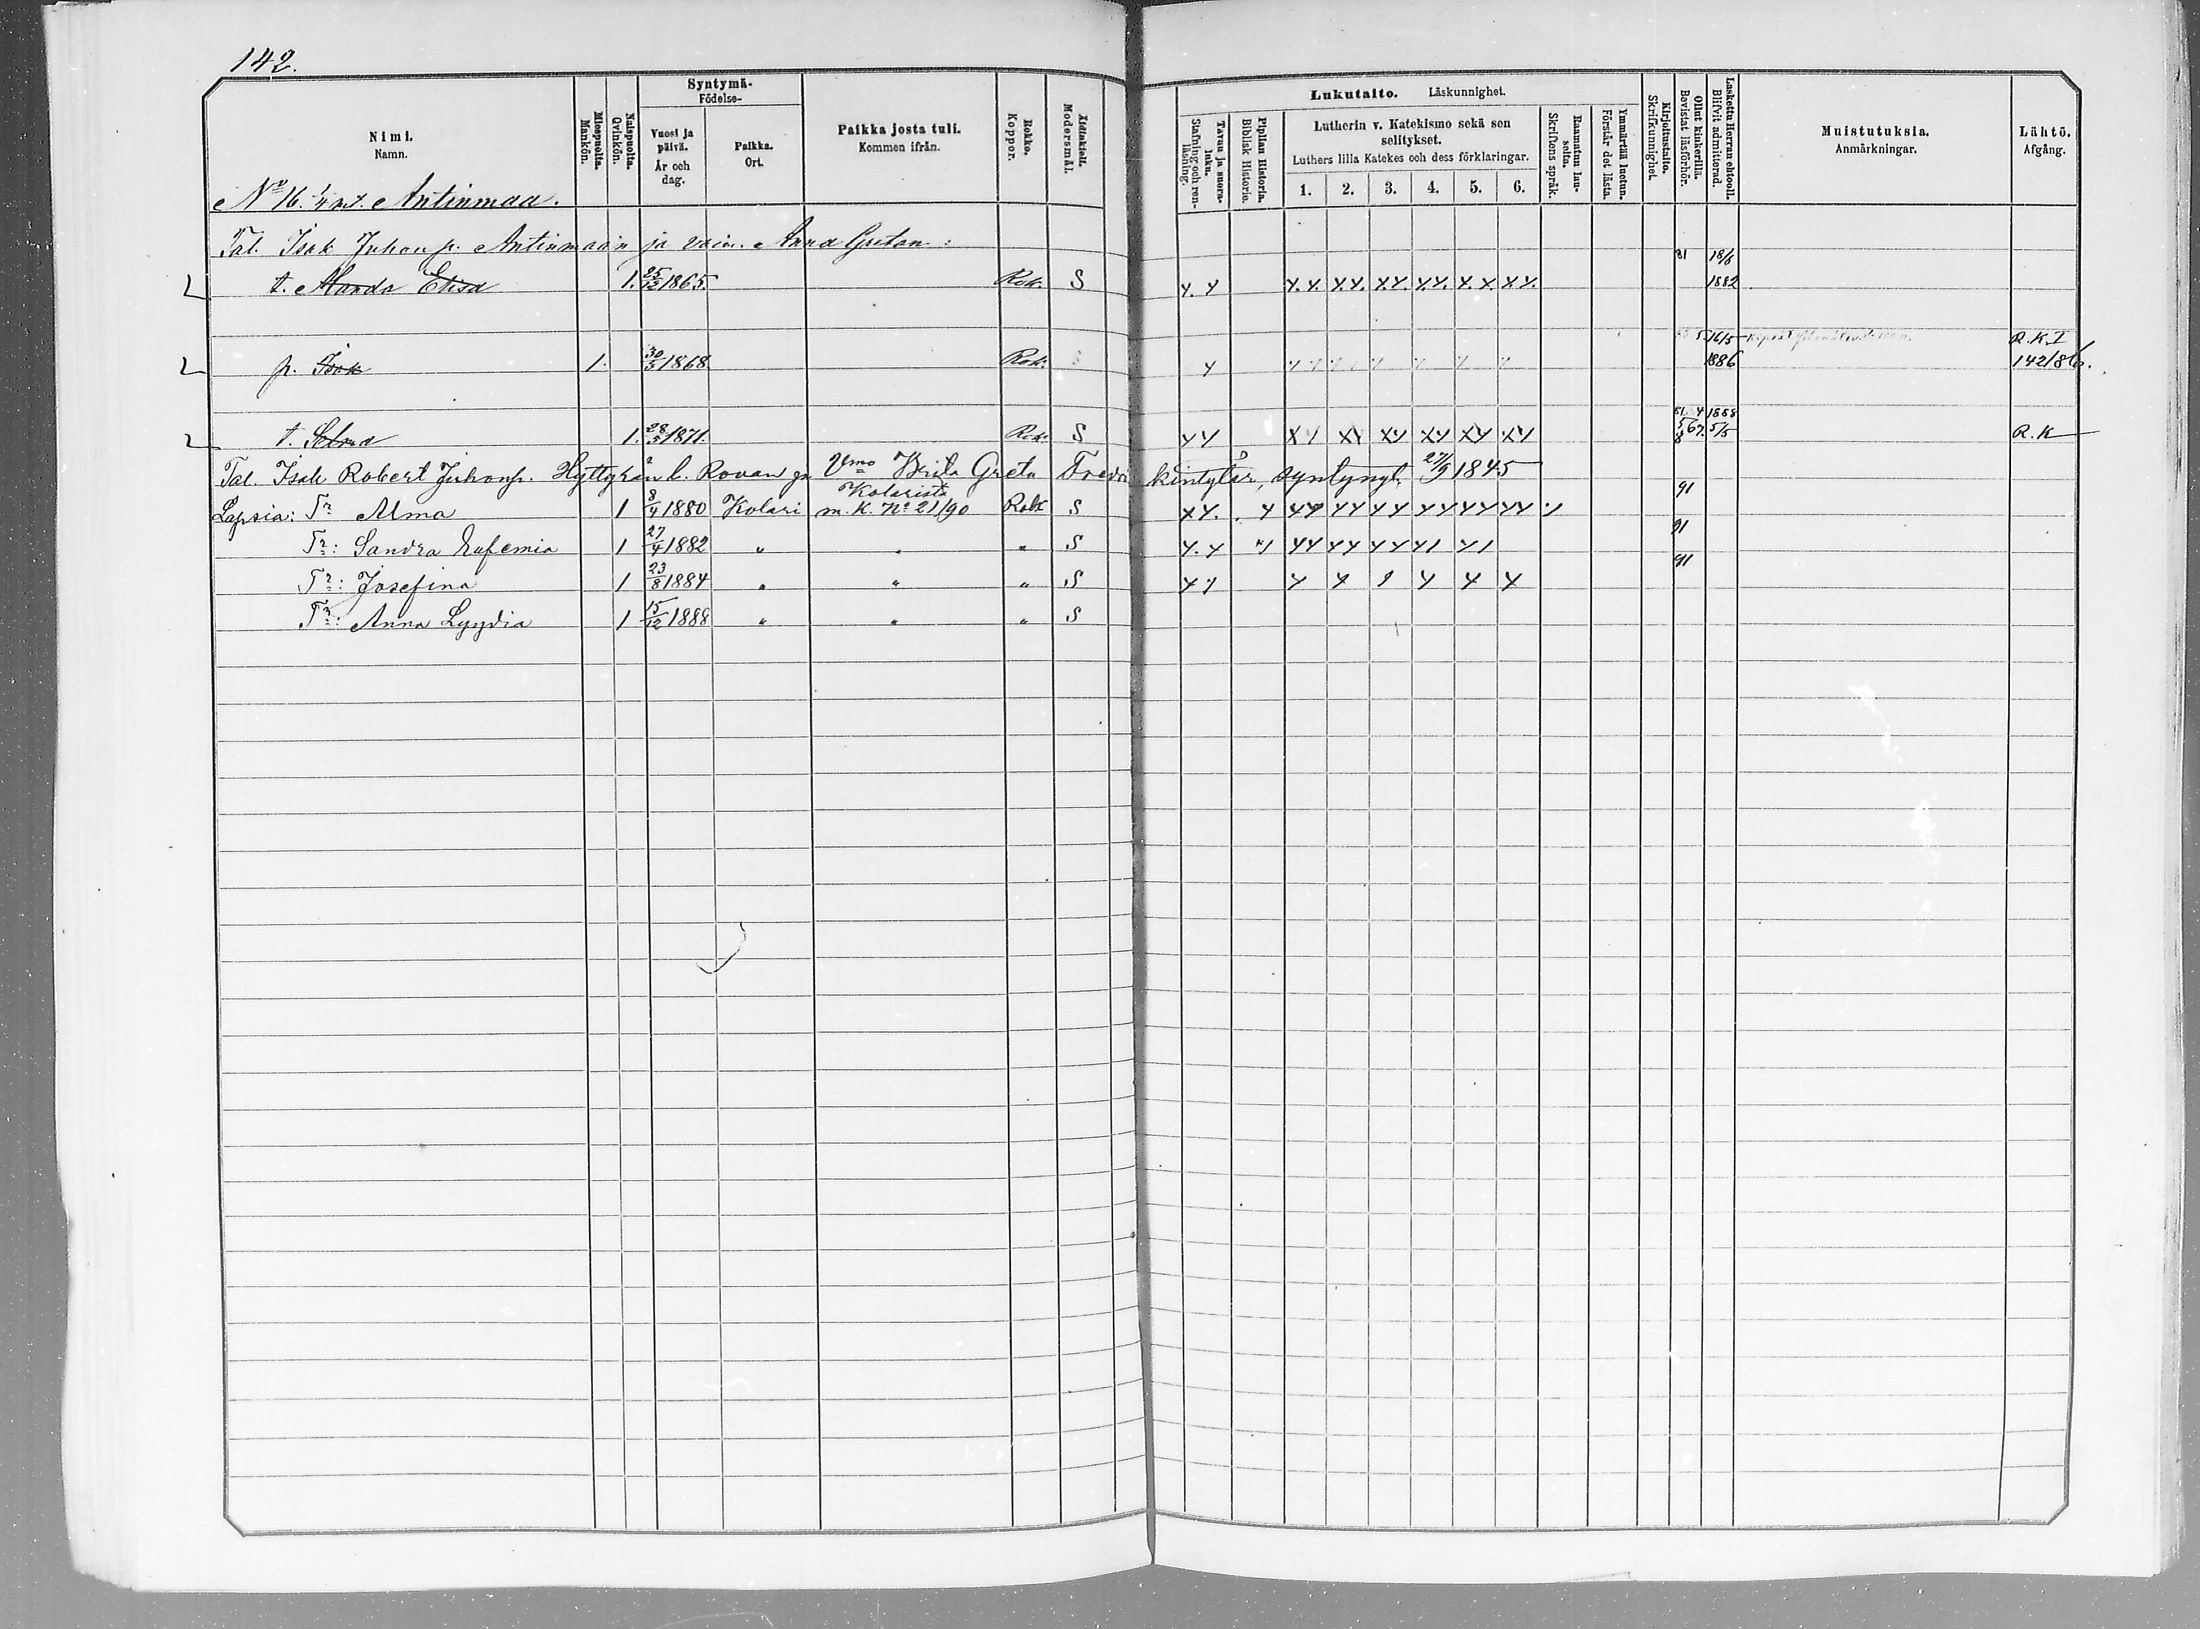 142.
Nimi.
Namn.
Miespuolta.
Mankön.
Naispuolta.
Qvinkön.
Syntymä-
Födelse-
Vuosi ja päivä.
År och dag.
Paikka.
Ort.
Paikka josta tuli.
Kommen ifrån.
Rokko.
Koppor.
Äidinkieli.
Modersmål.
Lukutaito. Läskunnighet.
Tavuu ja suoraluku.
Stafning och renläsning.
Piplian Historia.
Biblisk Historie.
Lutherin v. Katekismo sekä sen selitykset.
Luthers lilla Katekes och dess förklaringar.
1. 2. 3. 4. 5. 6.
Raamatun lauseita.
Skriftens språk.
Ymmärtää luetun.
Förstår det lästa.
Kirjoitustaito.
Skrifkunnighet.
Ollut kinkerillä.
Bevistat läsförhör.
Laskettu Herran ehtooll.
Blifvit admitterad.
Muistutuksia.
Anmärkningar.
Lähtö.
Afgång.
No 16. 1/4 mt. Antinmaa.
Tal. Isak Juhonp. Antinmaan ja vaim. Anna Gretan:
81 18/6
t. Manda Elisa 1. 25/12 1865. Rok. S 1882
16/5 R.K.I
p. Isak 1. 30/5 1868 Rok. 1886 142/86.
81 4 1888
t. Selma 1. 28/5 1871. Rok. S 67. 5/5 R.K
Tal. Isak Robert Juhonp. Hyttyrän l. Rovan ja Vmo Brita Greta Fredrikintytär, syntynyt 27/9 1845
Kolarista 91
Lapsia: Tr Alma 1 8/4 1880 Kolari m.k. No 21/90 Rok S
91
Tr: Sandra Eufemia 1 27/4 1882 " " " S
91
Tr: Josefina 1 23/8 1884 " " " S
Tr: Anna Lyydia 1 15/12 1888 " " " S